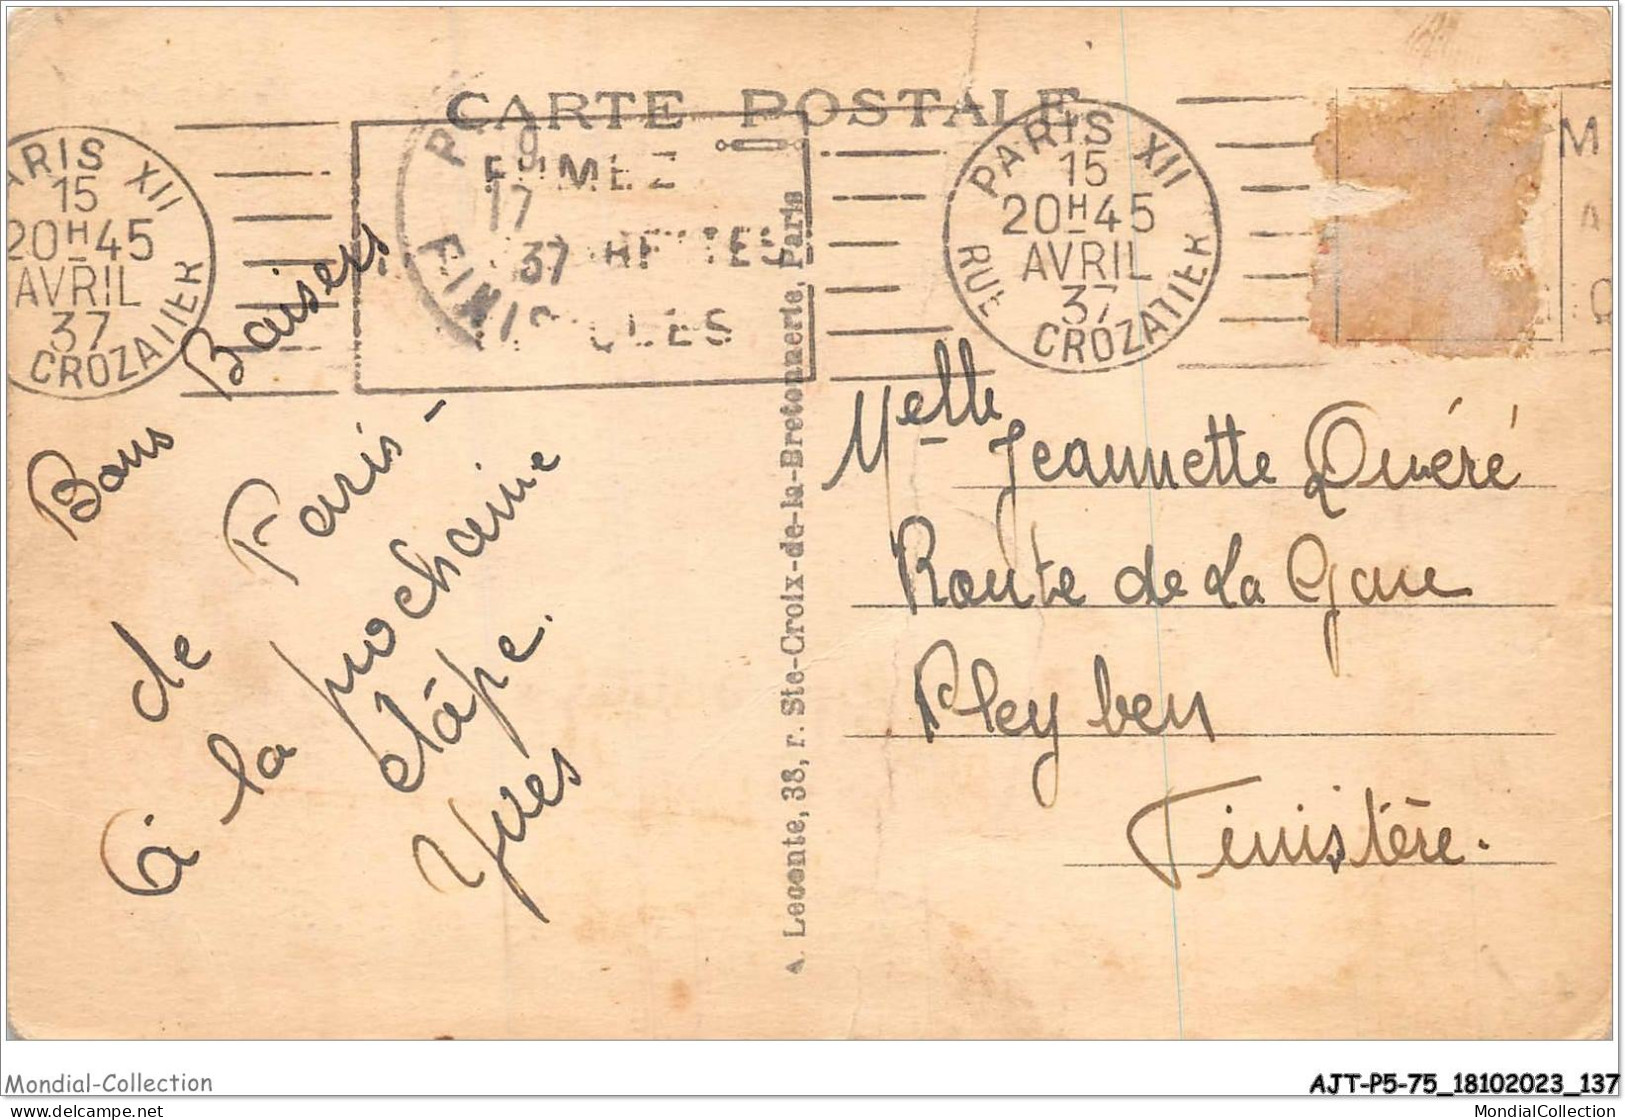 CARTE POSTALE
PARIS XII
15
20H45
AVRIL
37
CROZATIER
FUMEZ
17
37
FINIS
PARIS XII
15
20H45
AVRIL
37
RUE CROZATIER
M
Bons Baisers
de Paris -
à la prochaine
étâpe.
Yves
A. Leconte, 38, r. Ste-Croix-de-la-Bretonnerie, Paris
Melle Jeannette Quéré
Route de la Gare
Pleyben
Finistère.
Mondial-Collection
AJT-P5-75_18102023_137
www.delcampe.net
MondialCollection